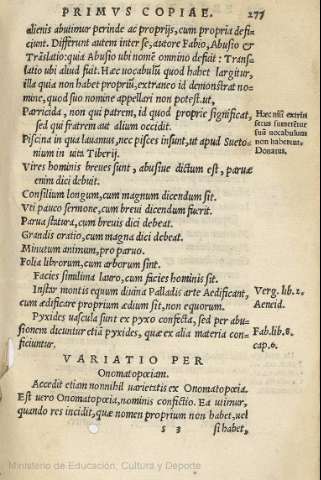 PRIMVS COPIAE. 277
alienis abutimur perinde ac proprijs, cum propria defi-
ciunt. Differunt autem inter se, autore Fabio, Abusio &
Trãslatio: quia Abusio ubi nomē omnino defuit: Trans-
latio ubi aliud fuit. Hæc uocabulū quod habet largitur,
illa quia non habet propriū, extraneo id demonstrat no-
mine, quod suo nomine appellari non potest, ut,
Parricida, non qui patrem, id quod proprie significat,
sed qui fratrem aut alium occidit.
Piscina in qua lauamus, nec pisces insunt, ut apud Sueto-
nium in uita Tiberij.
Vires hominis breues sunt, abusiue dictum est, paruæ
enim dici debuit.
Consilium longum, cum magnum dicendum sit.
Vti pauco sermone, cum breui dicendum fuerit.
Parua statura, cum breuis dici debeat.
Grandis oratio, cum magna dici debeat.
Minutum animum, pro paruo.
Folia librorum, cum arborum sint.
Facies simillima lauro, cum facies hominis sit.
Instar montis equum diuina Palladis arte Aedificant,
cum ædificare proprium ædium sit, non equorum.
Pyxides uascula sunt ex pyxo confecta, sed per abu-
sionem dicuntur etiā pyxides, quæ ex alia materia con-
ficiuntur.
VARIATIO PER
Onomatopœiam.
Accedit etiam nonnihil uarietatis ex Onomatopœia.
Est uero Onomatopœia, nominis confictio. Ea utimur,
quando res incidit, quæ nomen proprium non habet, uel
s 3 si habet,
Hæc nisi
suū uocabulum
non haberent.
Donatus.
Verg. lib. 2.
Aeneid.
Fab. lib. 8.
cap. 6.
Ministerio de Educación, Cultura y Deporte